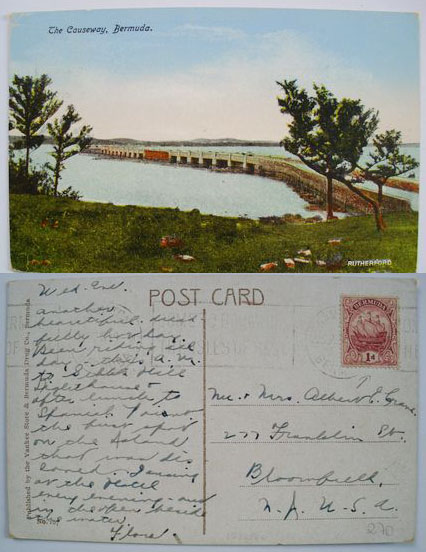 The Causeway, Bermuda.
RUTHERFORD
POST CARD
BERMUDA
1d
Published by the Yankee Store & Bermuda Drug Co., Bermuda
Wed. Eve.
Another
beautiful
fully hot day.
Been riding all
day - this a.m.
to Gibb's Hill
Lighthouse &
after lunch to
Spanish Point
the first spot
on the Island
that was dis-
covered. Dancing
at the Hotel
every evening - and
in the open beside
the water.
Flora.
Mr. & Mrs. Albert E.
277 Franklin St.
Bloomfield,
N. J. U. S. A.
No.
270